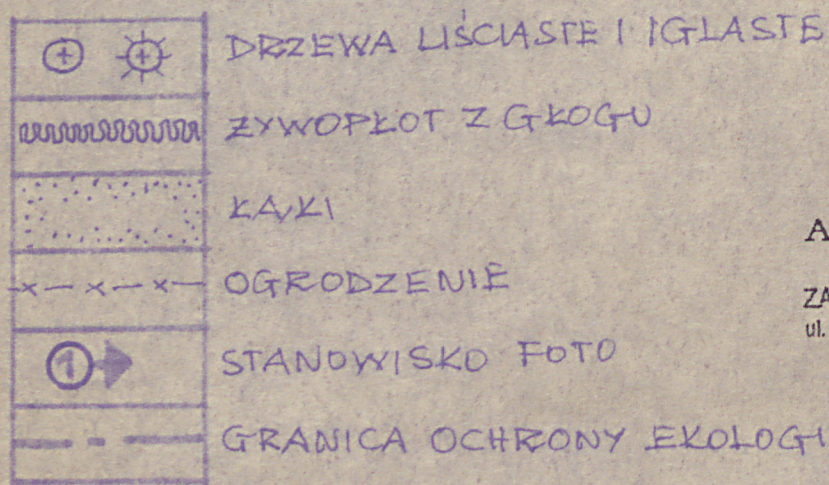 DRZEWA LIŚCIASTE I IGLASTE
ŻYWOPŁOT Z GŁOGU
ŁĄKI
OGRODZENIE
1 STANOWISKO FOTO
GRANICA OCHRONY EKOLOGI
A
ZA
ul.